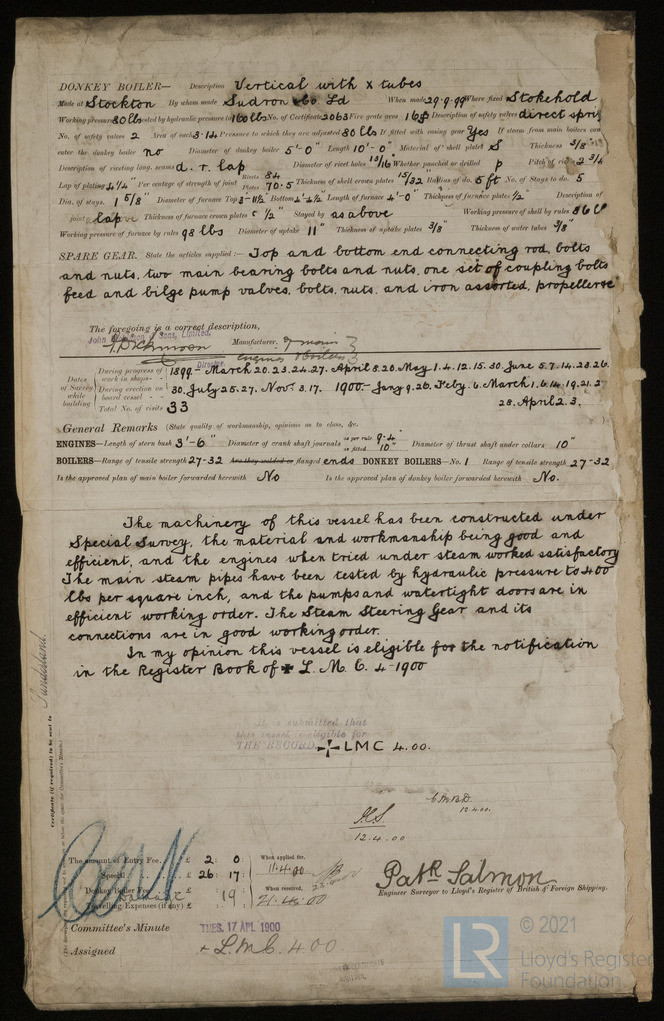 DONKEY BOILER— Description Vertical with x tubes
Made at Stockton By whom made Sudron & Co Ld When made 29.9.99 Where fixed Stokehold
Working pressure 80 lbs tested by hydraulic pressure to 160 lbs No. of Certificate 2063 Fire grate area 16 Description of safety valves direct spri
No. of safety valves 2 Area of each 3.14 Pressure to which they are adjusted 80 lbs If fitted with easing gear Yes If steam from main boilers can
enter the donkey boiler no Diameter of donkey boiler 5'-0" Length 10'-0" Material of shell plates S Thickness 3/8"
Description of riveting long. seams d. r. lap Diameter of rivet holes 13/16 Whether punched or drilled p Pitch of rivets 2 3/4
Lap of plating 4 1/4" Per centage of strength of joint Rivets 84 Plates 70.5 Thickness of shell crown plates 15/32 Radius of do. 5 ft No. of Stays to do. 5
Dia. of stays. 1 5/8" Diameter of furnace Top 3'-11 1/2 Bottom 4'-4 1/2 Length of furnace 4'-0" Thickness of furnace plates 1/2" Description of
joint lap Thickness of furnace crown plates 1/2" Stayed by as above Working pressure of shell by rules 86
Working pressure of furnace by rules 98 lbs Diameter of uptake 11" Thickness of uptake plates 3/8" Thickness of water tubes 3/8"
SPARE GEAR. State the articles supplied:— Top and bottom end connecting rod, bolts
and nuts, two main bearing bolts and nuts, one set of coupling bolts
feed and bilge pump valves, bolts, nuts, and iron assorted, propeller
The foregoing is a correct description,
John Sons, Limited.
Dickinson Manufacturer.
Director. engines & boilers
Dates of Survey while building
During progress of work in shops- 1899- March 20.23.24.27. April 8.20. May 1.4.12.15.30. June 5.7.14.23.26.
During erection on board vessel 30. July 25.27. Nov. 3.17. 1900- Jany 9.26. Feby. 6. March 1.6.14.19.21.2
Total No. of visits 33 28. April 2.3.
General Remarks (State quality of workmanship, opinions as to class, &c.
ENGINES—Length of stern bush 3'-6" Diameter of crank shaft journals as per rule 9.4 as fitted 10" Diameter of thrust shaft under collars 10"
BOILERS—Range of tensile strength 27-32 Are they welded or flanged ends DONKEY BOILERS—No. 1 Range of tensile strength 27-32
Is the approved plan of main boiler forwarded herewith No Is the approved plan of donkey boiler forwarded herewith No.
The machinery of this vessel has been constructed under
Special Survey, the material and workmanship being good and
efficient, and the engines when tried under steam worked satisfactory
The main steam pipes have been tested by hydraulic pressure to 400
lbs per square inch, and the pumps and watertight doors are in
efficient working order. The Steam Steering Gear and its
connections are in good working order.
In my opinion this vessel is eligible for the notification
in the Register Book of ✠ L. M. C. 4-1900
Sunderland
Certificate (if required) to be sent to
It is submitted that
this vessel is eligible for
THE RECORD ✠ LMC 4.00.
12.4.00.
12.4.00
The amount of Entry Fee . . £ 2 : 0 : When applied for,
Special . . £ 26 : 17 : 11.4.00
Donkey Boiler Fee . . £ When received,
Travelling Expenses (if any) £ : 19 : 21.4.00
Patk Salmon
Engineer Surveyor to Lloyd's Register of British & Foreign Shipping.
Committee's Minute TUES. 17 APL 1900
Assigned + L.M.C. 4.00
LR © 2021
Lloyd's Register
Foundation